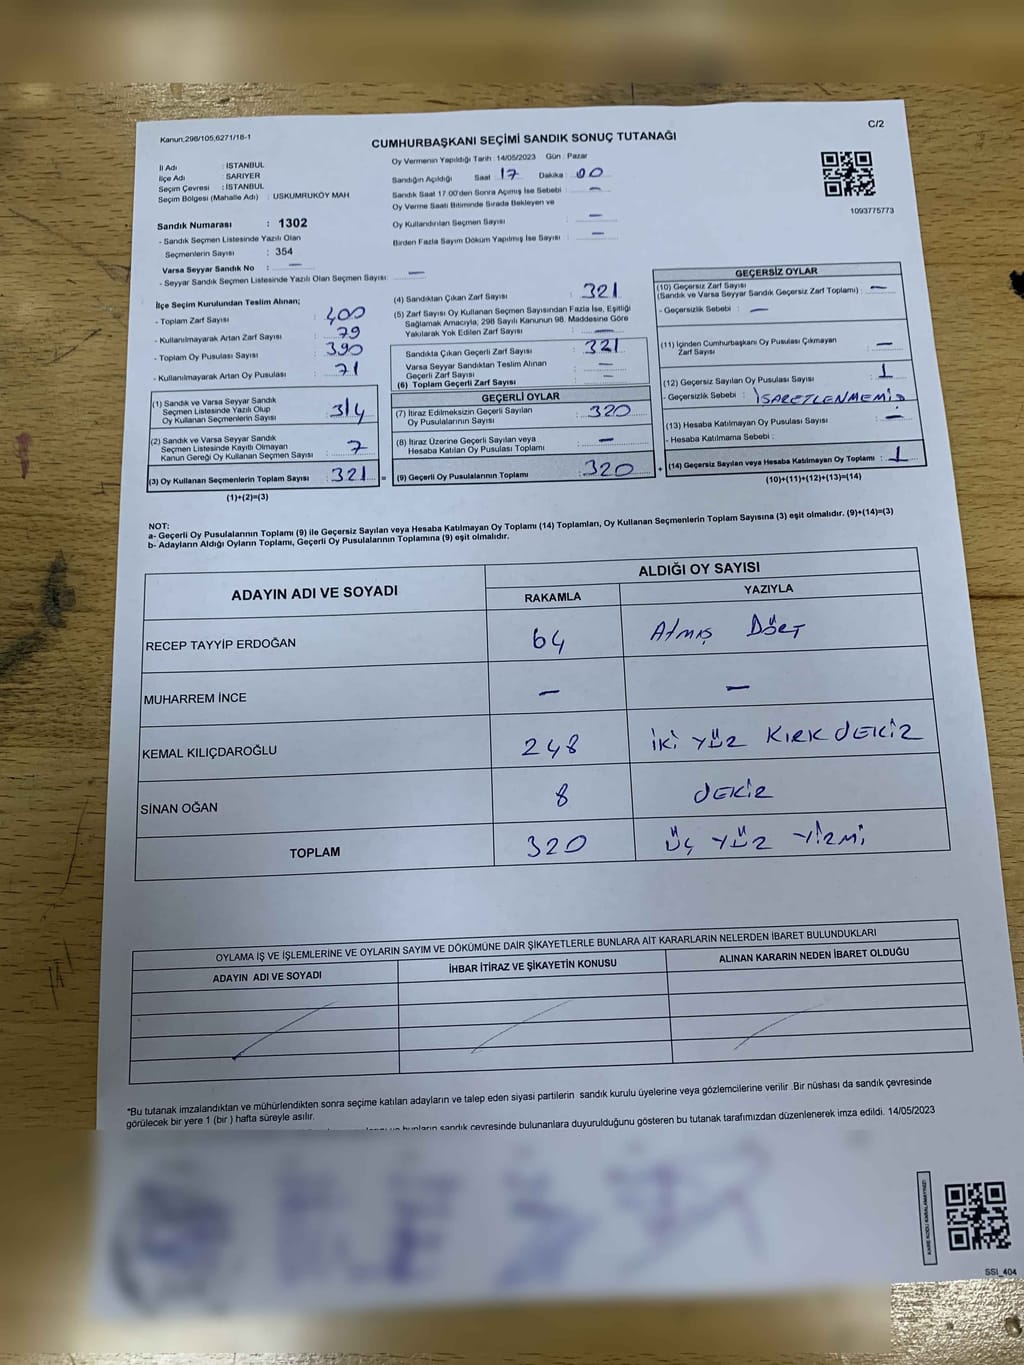 Kanun;298/105,6271/18-1
C/2
CUMHURBAŞKANI SEÇİMİ SANDIK SONUÇ TUTANAĞI
İl Adı : İSTANBUL
İlçe Adı : SARIYER
Seçim Çevresi : İSTANBUL
Seçim Bölgesi (Mahalle Adı) : USKUMRUKÖY MAH.
Sandık Numarası : 1302
- Sandık Seçmen Listesinde Yazılı Olan
Seçmenlerin Sayısı : 354
Varsa Seyyar Sandık No : —
- Seyyar Sandık Seçmen Listesinde Yazılı Olan Seçmen Sayısı: —
Oy Vermenin Yapıldığı Tarih : 14/05/2023 Gün : Pazar
Sandığın Açıldığı Saat 17 Dakika : 00
Sandık Saat 17.00'den Sonra Açımış İse Sebebi : —
Oy Verme Saati Bitiminde Sırada Bekleyen ve
Oy Kullandırılan Seçmen Sayısı : —
Birden Fazla Sayım Döküm Yapılmış İse Sayısı : —
1093775773
İlçe Seçim Kurulundan Teslim Alınan;
- Toplam Zarf Sayısı : 400
- Kullanılmayarak Artan Zarf Sayısı : 79
- Toplam Oy Pusulası Sayısı : 390
- Kullanılmayarak Artan Oy Pusulası : 71
(1) Sandık ve Varsa Seyyar Sandık
Seçmen Listesinde Yazılı Olup
Oy Kullanan Seçmenlerin Sayısı : 314
(2) Sandık ve Varsa Seyyar Sandık
Seçmen Listesinde Kayıtlı Olmayan
Kanun Gereği Oy Kullanan Seçmen Sayısı : 7
(3) Oy Kullanan Seçmenlerin Toplam Sayısı : 321 =
(1)+(2)=(3)
(4) Sandıktan Çıkan Zarf Sayısı : 321
(5) Zarf Sayısı Oy Kullanan Seçmen Sayısından Fazla İse, Eşitliği
Sağlamak Amacıyla; 298 Sayılı Kanunun 98. Maddesine Göre
Yakılarak Yok Edilen Zarf Sayısı : —
Sandıkta Çıkan Geçerli Zarf Sayısı : 321
Varsa Seyyar Sandıktan Teslim Alınan
Geçerli Zarf Sayısı : —
(6) Toplam Geçerli Zarf Sayısı : —
GEÇERLİ OYLAR
(7) İtiraz Edilmeksizin Geçerli Sayılan
Oy Pusulalarının Sayısı : 320
(8) İtiraz Üzerine Geçerli Sayılan veya
Hesaba Katılan Oy Pusulası Toplamı : —
(9) Geçerli Oy Pusulalarının Toplamı : 320 +
GEÇERSİZ OYLAR
(10) Geçersiz Zarf Sayısı
(Sandık ve Varsa Seyyar Sandık Geçersiz Zarf Toplamı) : —
- Geçersizlik Sebebi : —
(11) İçinden Cumhurbaşkanı Oy Pusulası Çıkmayan
Zarf Sayısı : —
(12) Geçersiz Sayılan Oy Pusulası Sayısı : 1
- Geçersizlik Sebebi : İŞARETLENMEMİŞ
(13) Hesaba Katılmayan Oy Pusulası Sayısı : —
- Hesaba Katılmama Sebebi :
(14) Geçersiz Sayılan veya Hesaba Katılmayan Oy Toplamı : 1
(10)+(11)+(12)+(13)=(14)
NOT:
a- Geçerli Oy Pusulalarının Toplamı (9) ile Geçersiz Sayılan veya Hesaba Katılmayan Oy Toplamı (14) Toplamları, Oy Kullanan Seçmenlerin Toplam Sayısına (3) eşit olmalıdır. (9)+(14)=(3)
b- Adayların Aldığı Oyların Toplamı, Geçerli Oy Pusulalarının Toplamına (9) eşit olmalıdır.
ADAYIN ADI VE SOYADI
ALDIĞI OY SAYISI
RAKAMLA YAZIYLA
RECEP TAYYİP ERDOĞAN 64 Atmış DÖRT
MUHARREM İNCE — —
KEMAL KILIÇDAROĞLU 248 İKİ YÜZ KIRK SEKİZ
SİNAN OĞAN 8 SEKİZ
TOPLAM 320 ÜÇ YÜZ YİRMİ
OYLAMA İŞ VE İŞLEMLERİNE VE OYLARIN SAYIM VE DÖKÜMÜNE DAİR ŞİKAYETLERLE BUNLARA AİT KARARLARIN NELERDEN İBARET BULUNDUKLARI
ADAYIN ADI VE SOYADI İHBAR İTİRAZ VE ŞİKAYETİN KONUSU ALINAN KARARIN NEDEN İBARET OLDUĞU
*Bu tutanak imzalandıktan ve mühürlendikten sonra seçime katılan adayların ve talep eden siyasi partilerin sandık kurulu üyelerine veya gözlemcilerine verilir .Bir nüshası da sandık çevresinde
görülecek bir yere 1 (bir ) hafta süreyle asılır.
bunların sandık çevresinde bulunanlara duyurulduğunu gösteren bu tutanak tarafımızdan düzenlenerek imza edildi. 14/05/2023
KARE KODU KARALAMAYINIZ!
SSI_404